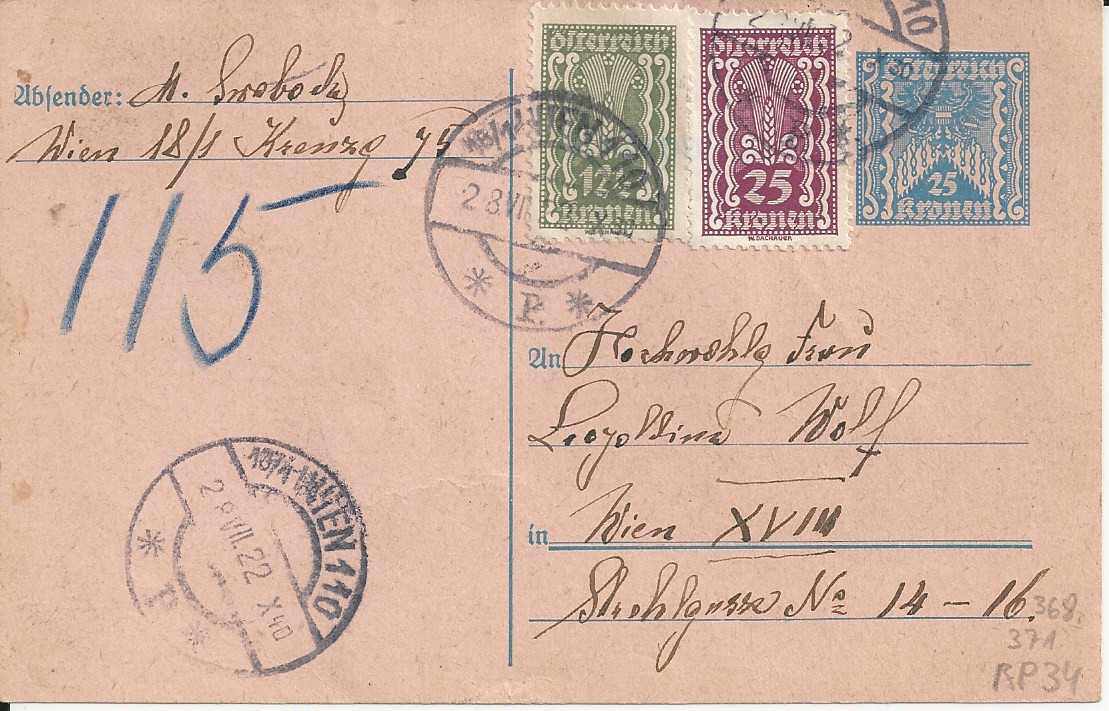 Absender: M. Swoboda
Wien 18/1 Kreuzg 75
115
Österreich
12½
Kronen
Österreich
25
Kronen
W. DACHAUER
Österreich
25
Kronen
18/1 WIEN 110
28.VII. X40
* P. *
110
An Hochwohlg Frau
Leopoldine Wolf
in Wien XVIII
No 14 - 16.
18/1 WIEN 110
28.VII.22 X40
* P. *
368.
371
RP34